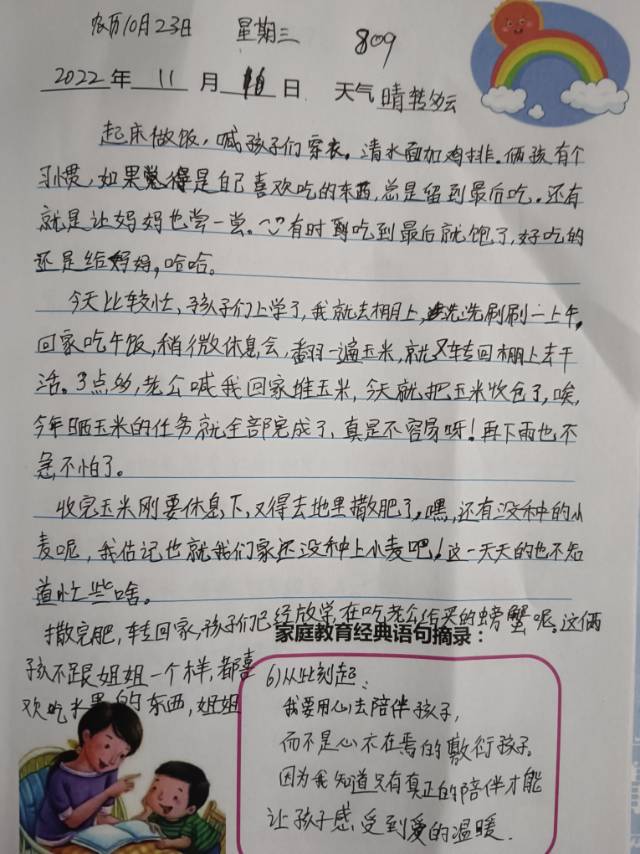 农历10月23日 星期三 809
2022年11月16日 天气晴转多云
起床做饭，喊孩子们穿衣。清水面加鸡排。俩孩有个
习惯，如果觉得是自己喜欢吃的东西，总是留到最后吃。还有
就是让妈妈也尝一尝。有时到吃到最后就饱了，好吃的
还是给妈妈，哈哈。
今天比较忙，孩子们上学了，我就去棚上，洗洗刷刷一上午，
回家吃午饭，稍微休息会，翻一遍玉米，就又转回棚上去干
活。3点多，老公喊我回家堆玉米，今天就把玉米收包了，唉，
今年晒玉米的任务就全部完成了，真是不容易呀！再下雨也不
急不怕了。
收完玉米刚要休息下，又得去地里撒肥了，嘿，还有没种的小
麦呢，我估记也就我们家还没种上小麦吧！这一天天的也不知
道忙些啥。
撒完肥，转回家，孩子们已经放学在吃老公给买的螃蟹呢。这俩
家庭教育经典语句摘录：
孩不跟姐姐一个样，都喜
欢吃水里的东西，姐姐
6）从此刻起：
我要用心去陪伴孩子，
而不是心不在焉的敷衍孩子。
因为我知道只有真正的陪伴才能
让孩子感受到爱的温暖.